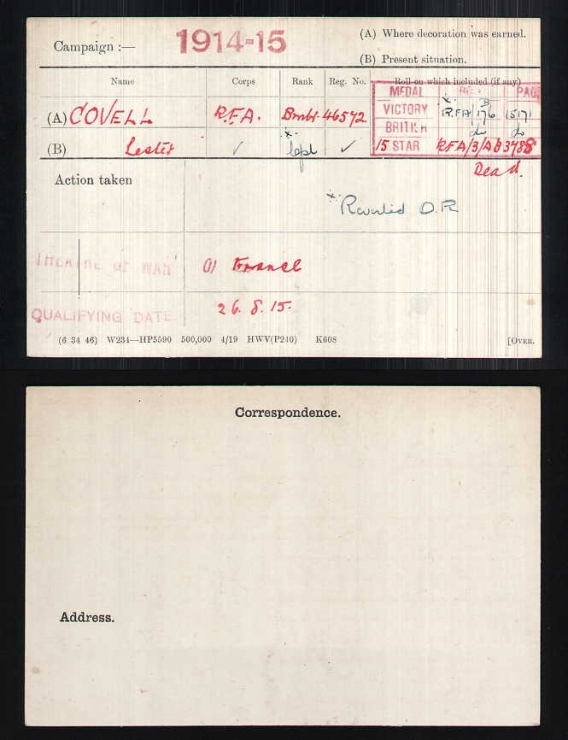 Campaign :— 1914-15 (A) Where decoration was earned.
(B) Present situation.
Name Corps Rank Reg. No. Roll on which included (if any)
MEDAL PAGE
(A) COVELL R.F.A. Bmbr. 46572 VICTORY R.F.A/176 B 15171
BRITISH do do
(B) Lester ✓ ✓ 15 STAR RFA/3/AB 3788
Dead.
Action taken
Reverted O.R
THEATRE OF WAR 01 France
QUALIFYING DATE 26.8.15.
(6 34 46) W234—HP5590 500,000 4/19 HWV(P240) K608 [OVER.
Correspondence.
Address.